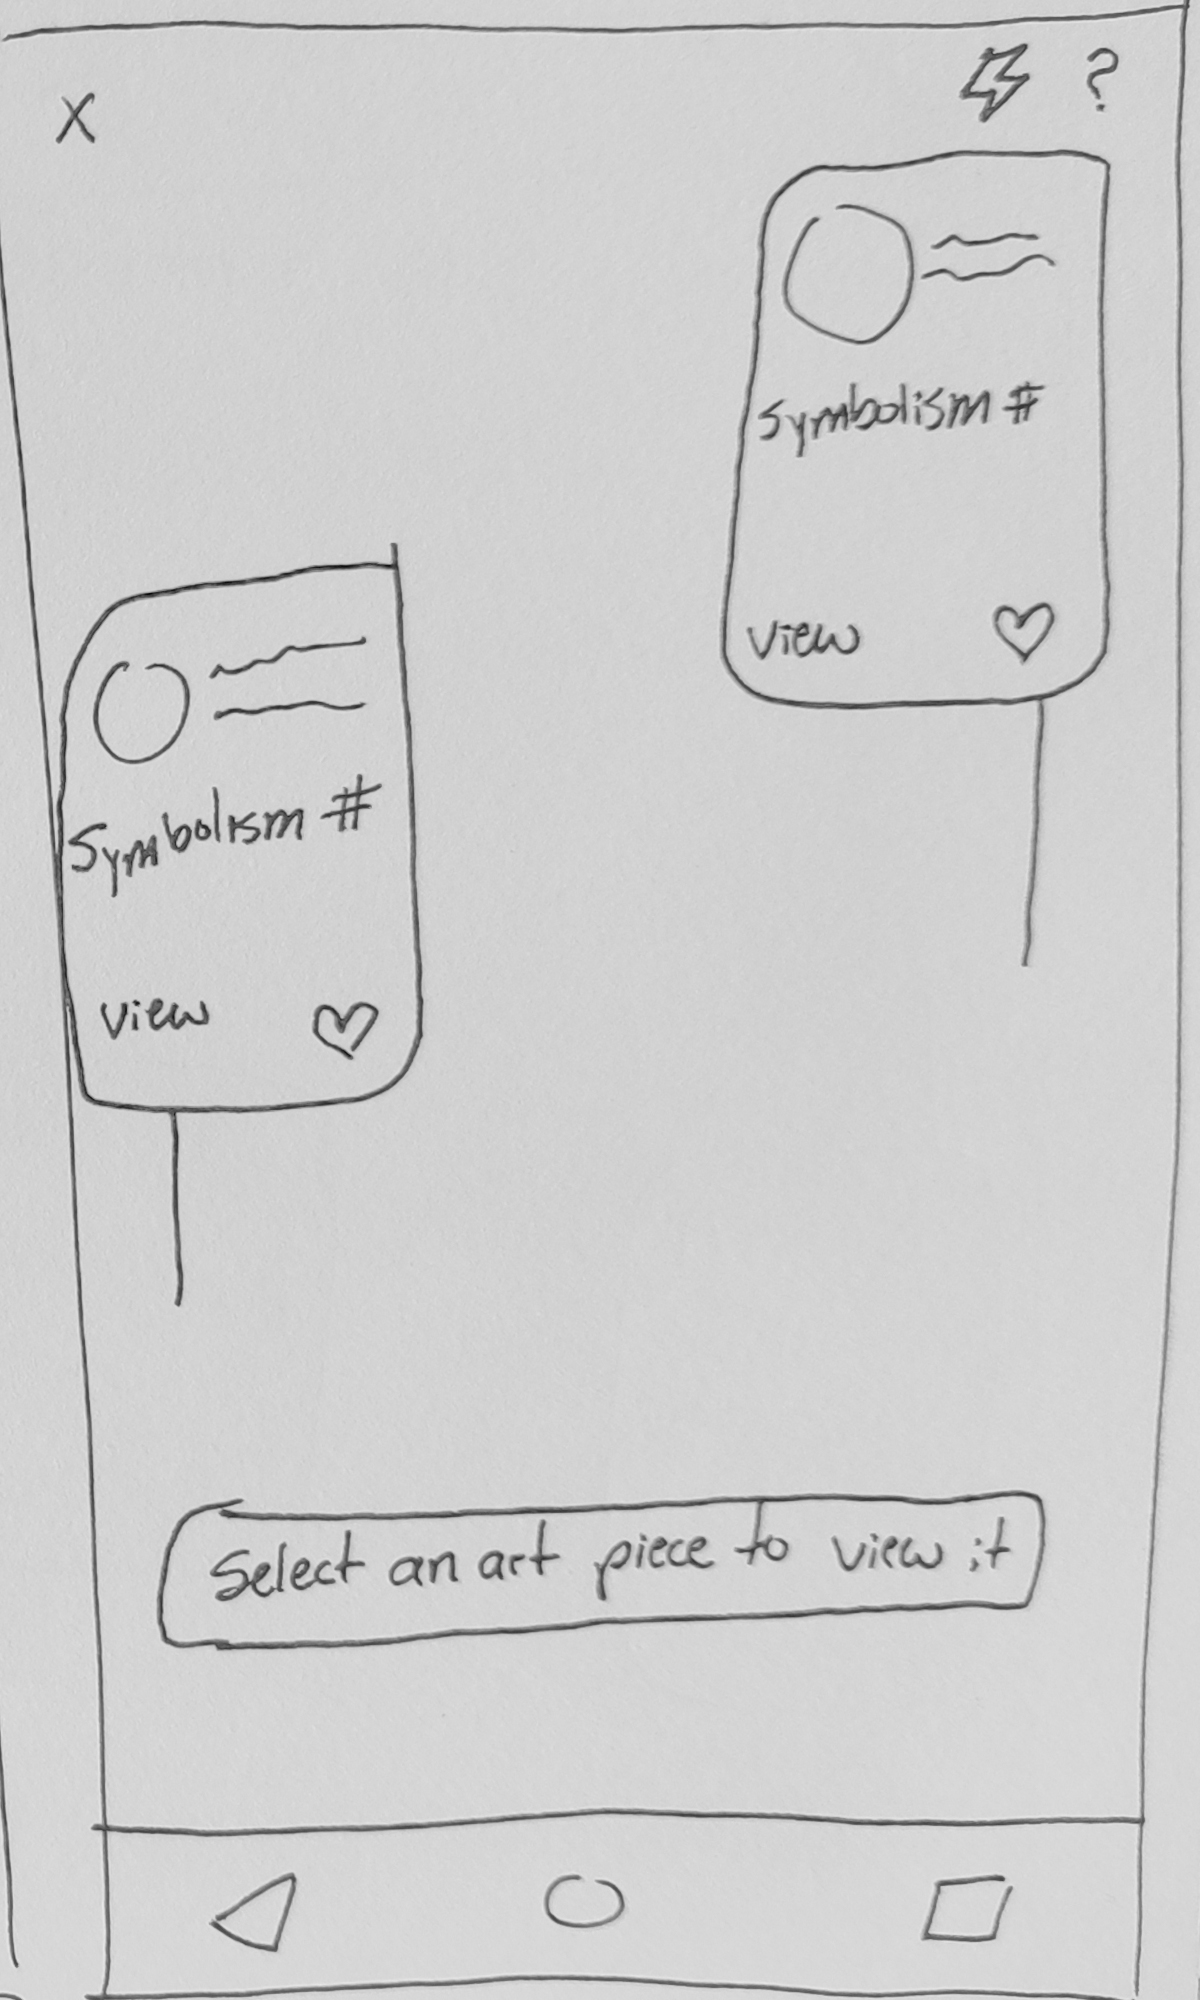 X
?
Symbolism #
View
Symbolism #
View
Select an art piece to view it